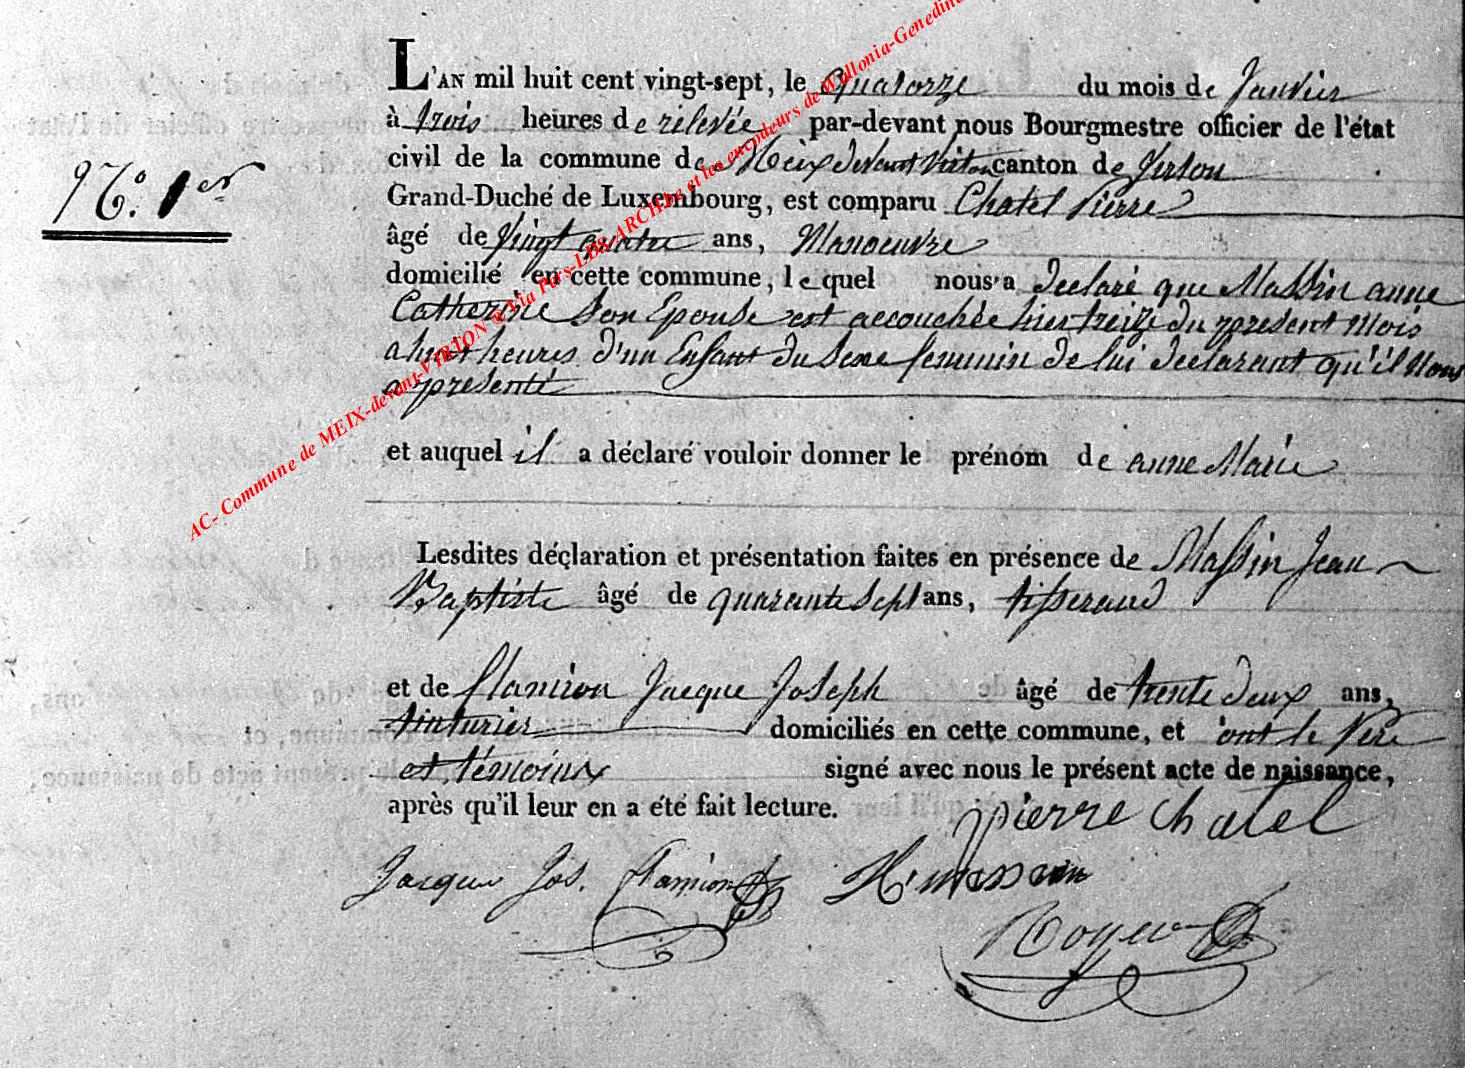 L'AN mil huit cent vingt-sept, le quatorze du mois de Janvier
à trois heures de relevée par-devant nous Bourgmestre officier de l'état
civil de la commune de Meix devant Virton canton de Virton
N.° 1er
Grand-Duché de Luxembourg, est comparu Chatel Pierre
âgé de Vingt quatre ans, Manoeuvre
domicilié en cette commune, lequel nous a declaré que Massin anne
Catherine Son Epouse est accouchée hier treize du present Mois
a huit heures d'un Enfant du Sexe féminin de lui declarant qu'il Nous
a presenté
et auquel il a déclaré vouloir donner le prénom de anne Marie
Lesdites déclaration et présentation faites en présence de Massin Jean
Baptiste âgé de quarante Sept ans, tisserand
et de flamion Jacque Joseph âgé de trente deux ans,
tinturier domiciliés en cette commune, et ont le Pere
et témoins signé avec nous le présent acte de naissance,
après qu'il leur en a été fait lecture.
pierre Chatel
Jacque Jos. flamion
AC- Commune de MEIX-devant-VIRTON ® Via Pars-LDS-ARCHbe et les encodeurs de Wallonia-Genedinu